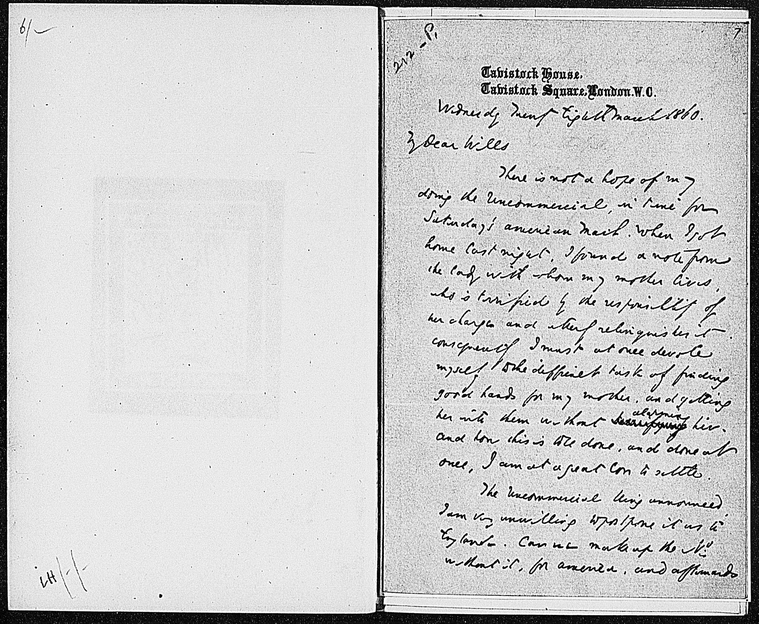 6/-
212-P.
7
Tavistock House,
Tavistock Square, London. W.C.
Wednesday Twenty Eighth March 1860.
My Dear Wills
There is not a hope of my
doing the Uncommercial, in time for
Saturday's American Mail. When I got
home last night, I found a note from
the lady with whom my mother lives,
who is terrified by the responsibility of
her charge and utterly relinquishes it.
consequently I must at once devote
myself to the difficult task of finding
good hands for my mother, and getting
her into them without alarming her.
and how this is to be done, and done at
once, I am at a great loss to settle.
The Uncommercial being announced
I am very unwilling to postpone it as to
England. Can we make up the No.
without it, for America, and afterwards